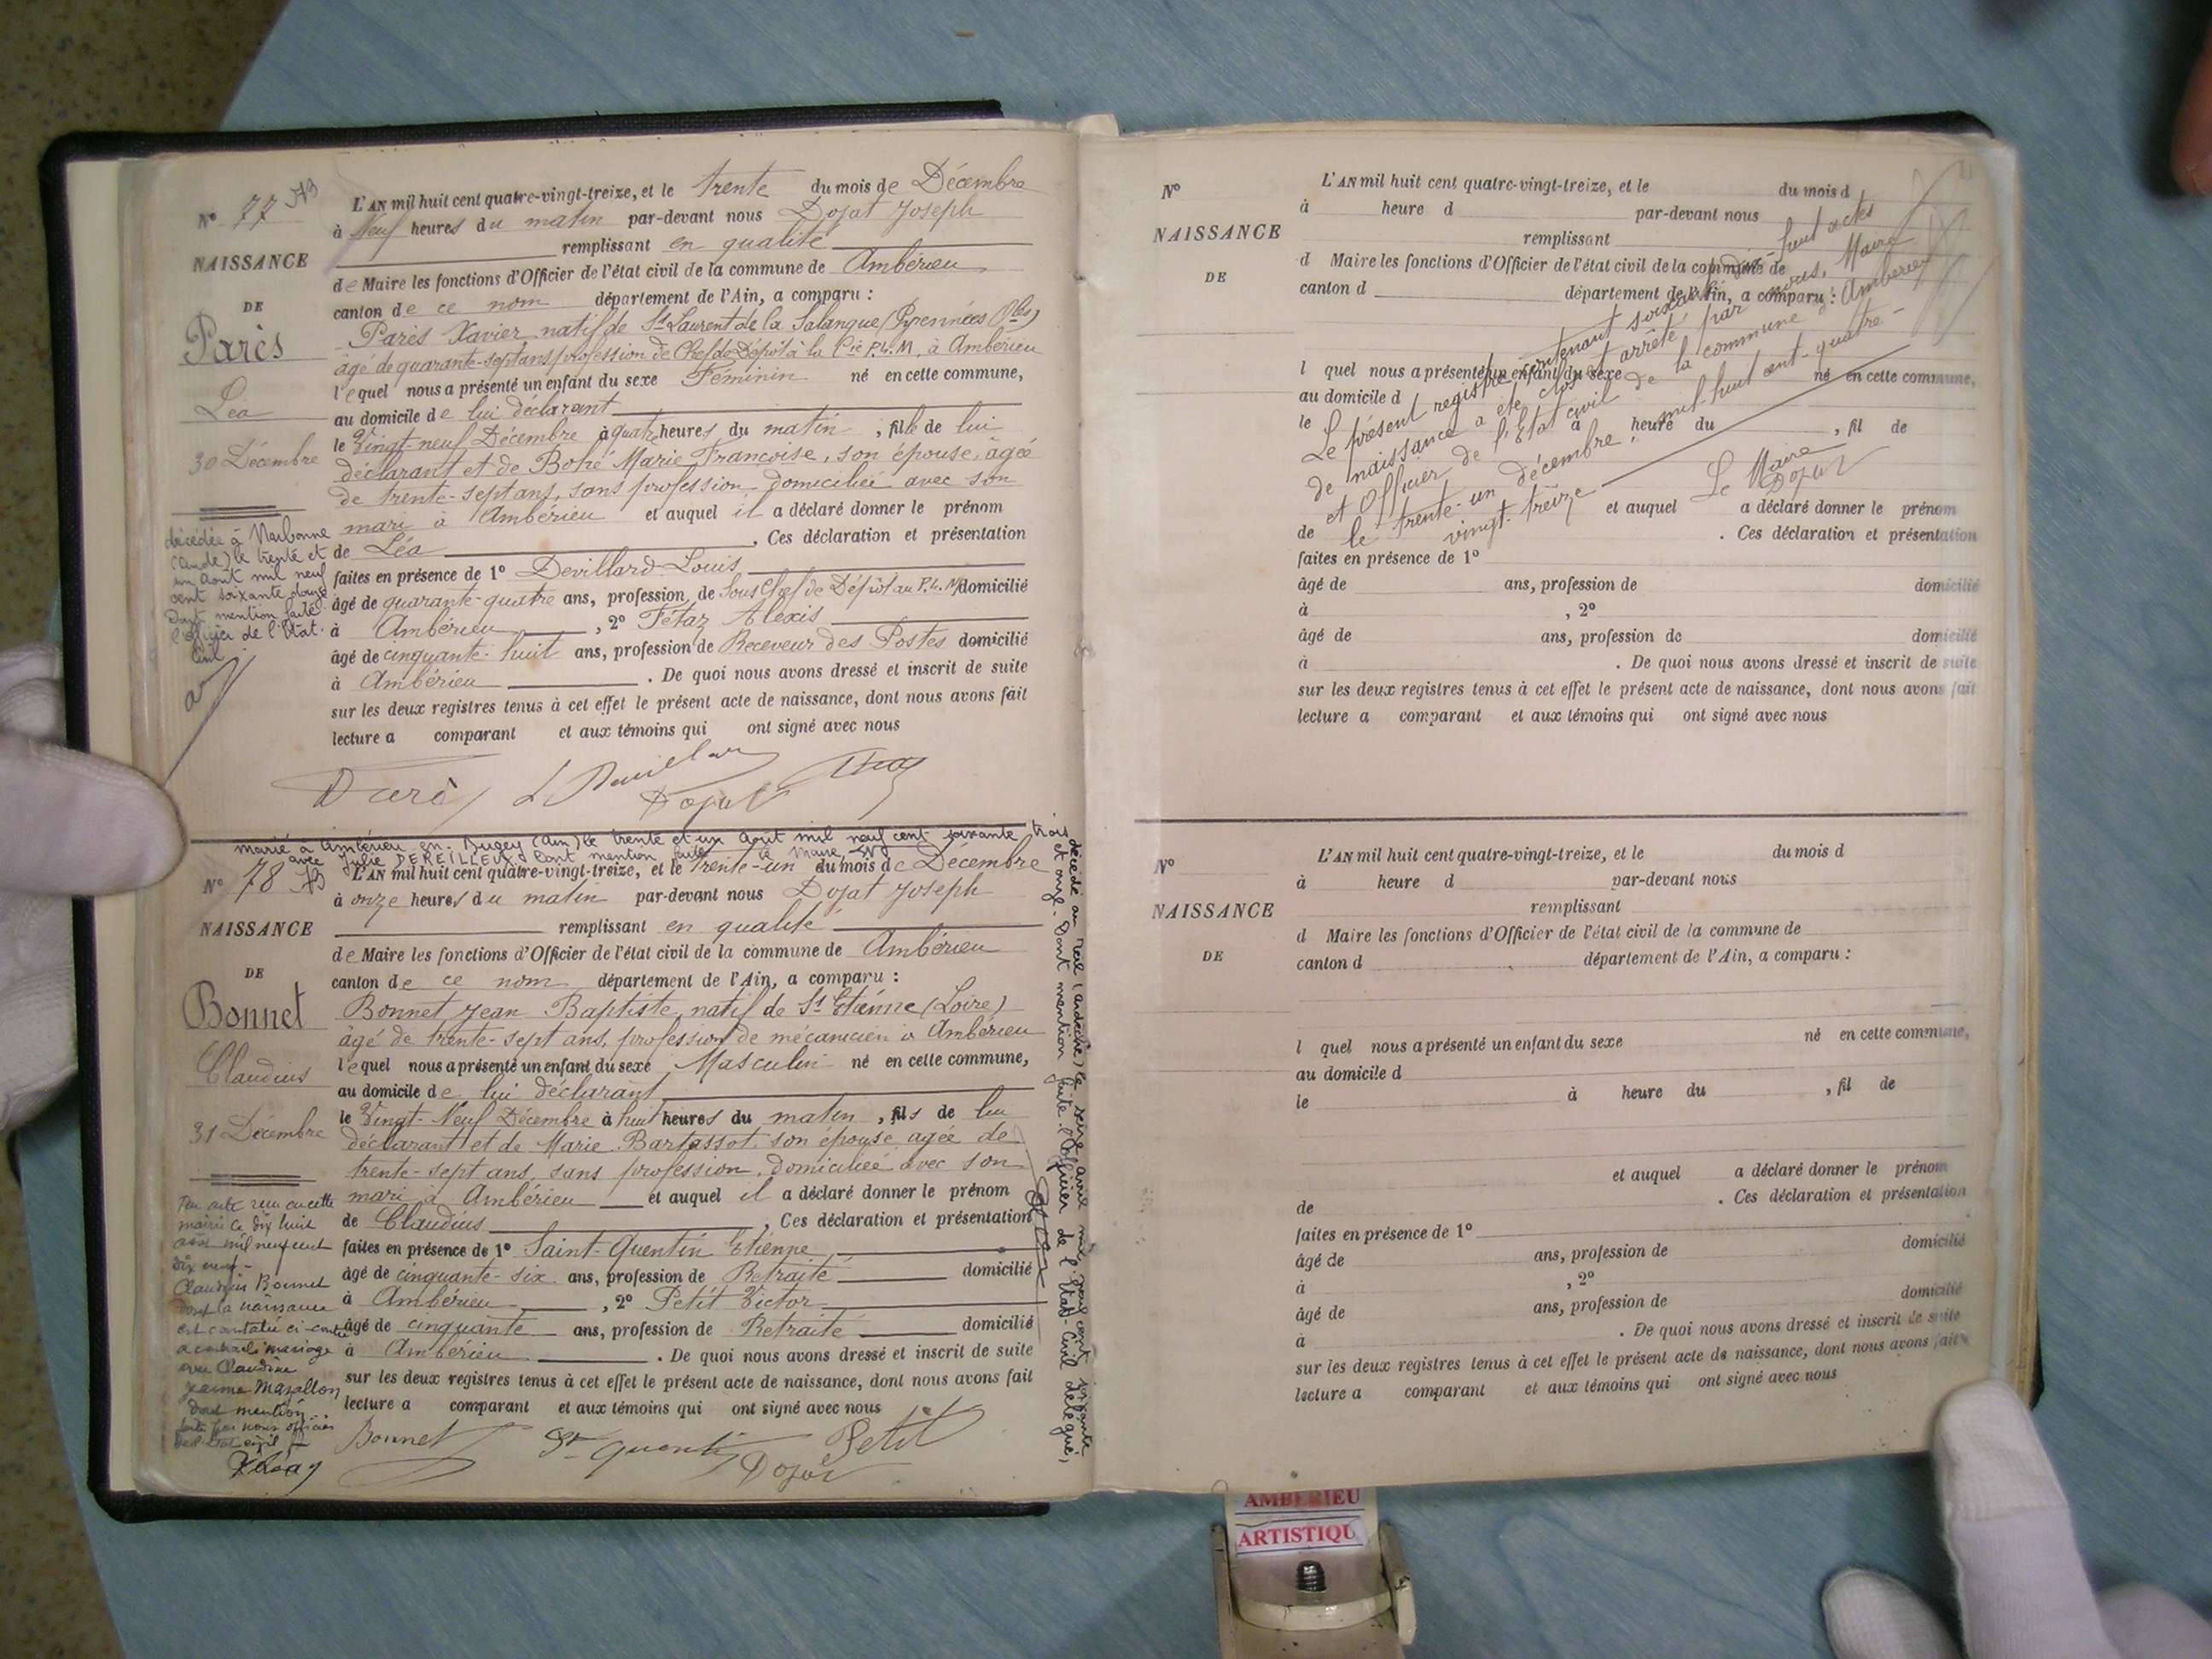 N° 77
NAISSANCE
DE
Parès
Léa
30 Décembre
décédée à Narbonne
(Aude) le trente et
un Août mil neuf
cent soixante douze
Dont mention faite
l'officier de l'Etat
Civil
L'AN mil huit cent quatre-vingt-treize, et le trente du mois de Décembre
à Neuf heures du matin par-devant nous Dojat Joseph
remplissant en qualité
de Maire les fonctions d'Officier de l'état civil de la commune de Ambérieu
canton de ce nom département de l'Ain, a comparu :
Parès Xavier natif de St Laurent de la Salanque (Pyrennées Oles)
âgé de quarante-sept ans, profession de Chef de Dépôt à la Cie P.L.M. à Ambérieu
lequel nous a présenté un enfant du sexe Féminin né en cette commune,
au domicile de lui déclarant
le Vingt-neuf Décembre à quatre heures du matin, fille de lui
déclarant et de Bohé Marie Françoise, son épouse, âgée
de trente-sept ans, sans profession, domiciliée avec son
mari à Ambérieu et auquel il a déclaré donner le prénom
de Léa . Ces déclaration et présentation
faites en présence de 1° Devillard Louis
âgé de quarante-quatre ans, profession de Sous Chef de Dépôt au P.L.M. domicilié
à Ambérieu , 2° Fétaz Alexis
âgé de cinquante-huit ans, profession de Receveur des Postes domicilié
à Ambérieu . De quoi nous avons dressé et inscrit de suite
sur les deux registres tenus à cet effet le présent acte de naissance, dont nous avons fait
lecture a comparant et aux témoins qui ont signé avec nous
Parès L Devillard
Dojat
marié à Ambérieu en Bugey (Ain) le trente et un Août mil neuf cent soixante trois
avec Julie DEREILLEUX. Dont mention faite le Maire
N° 78
NAISSANCE
DE
Bonnet
Claudius
31 Décembre
Par acte reçu en cette
mairie le dix huit
août mil neuf cent
dix neuf
Claudius Bonnet
dont la naissance
est constatée ci-contre
a contracté mariage
avec Claudine
Jeanne Mazallon
dont mention
faite par nous officier
de l'Etat civil
L'AN mil huit cent quatre-vingt-treize, et le trente-un du mois de Décembre
à onze heures du matin par-devant nous Dojat Joseph
remplissant en qualité
de Maire les fonctions d'Officier de l'état civil de la commune de Ambérieu
canton de ce nom département de l'Ain, a comparu :
Bonnet Jean Baptiste, natif de St Etiénne (Loire)
âgé de trente-sept ans, profession de mécanicien à Ambérieu
lequel nous a présenté un enfant du sexe Masculin né en cette commune,
au domicile de lui déclarant
le Vingt-Neuf Décembre à huit heures du matin, fils de lui
déclarant et de Marie Bartassot son épouse âgée de
trente-sept ans, sans profession, domiciliée avec son
mari à Ambérieu et auquel il a déclaré donner le prénom
de Claudius . Ces déclaration et présentation
faites en présence de 1° Saint-Quentin Etienne
âgé de cinquante-six ans, profession de Retraité domicilié
à Ambérieu , 2° Petit Victor
âgé de cinquante ans, profession de Retraité domicilié
à Ambérieu . De quoi nous avons dressé et inscrit de suite
sur les deux registres tenus à cet effet le présent acte de naissance, dont nous avons fait
lecture a comparant et aux témoins qui ont signé avec nous
Bonnet St Quentin Petit
Dojat
décédé au (Ardèche) le seize avril mil neuf cent soixante
et onze. Dont mention faite. l'Officier de l'Etat-Civil délégué,
N°
NAISSANCE
DE
L'AN mil huit cent quatre-vingt-treize, et le du mois d
à heure d par-devant nous
remplissant
d Maire les fonctions d'Officier de l'état civil de la commune de
canton d département de l'Ain, a comparu :
l quel nous a présenté un enfant du sexe né en cette commune,
au domicile d
le à heure du , fil de
et auquel a déclaré donner le prénom
de . Ces déclaration et présentation
faites en présence de 1°
âgé de ans, profession de domicilié
à , 2°
âgé de ans, profession de domicilié
à . De quoi nous avons dressé et inscrit de suite
sur les deux registres tenus à cet effet le présent acte de naissance, dont nous avons fait
lecture a comparant et aux témoins qui ont signé avec nous
Le présent registre contenant soixante-dix-huit actes
de naissance a été clos et arrêté par nous, Maire
et Officier de l'Etat civil de la commune d'Ambérieu
le trente-un décembre mil-huit cent-quatre-
vingt-treize
Le Maire
Dojat
N°
NAISSANCE
DE
L'AN mil huit cent quatre-vingt-treize, et le du mois d
à heure d par-devant nous
remplissant
d Maire les fonctions d'Officier de l'état civil de la commune de
canton d département de l'Ain, a comparu :
l quel nous a présenté un enfant du sexe né en cette commune,
au domicile d
le à heure du , fil de
et auquel a déclaré donner le prénom
de . Ces déclaration et présentation
faites en présence de 1°
âgé de ans, profession de domicilié
à , 2°
âgé de ans, profession de domicilié
à . De quoi nous avons dressé et inscrit de suite
sur les deux registres tenus à cet effet le présent acte de naissance, dont nous avons fait
lecture a comparant et aux témoins qui ont signé avec nous
AMBERIEU
ARTISTIQU